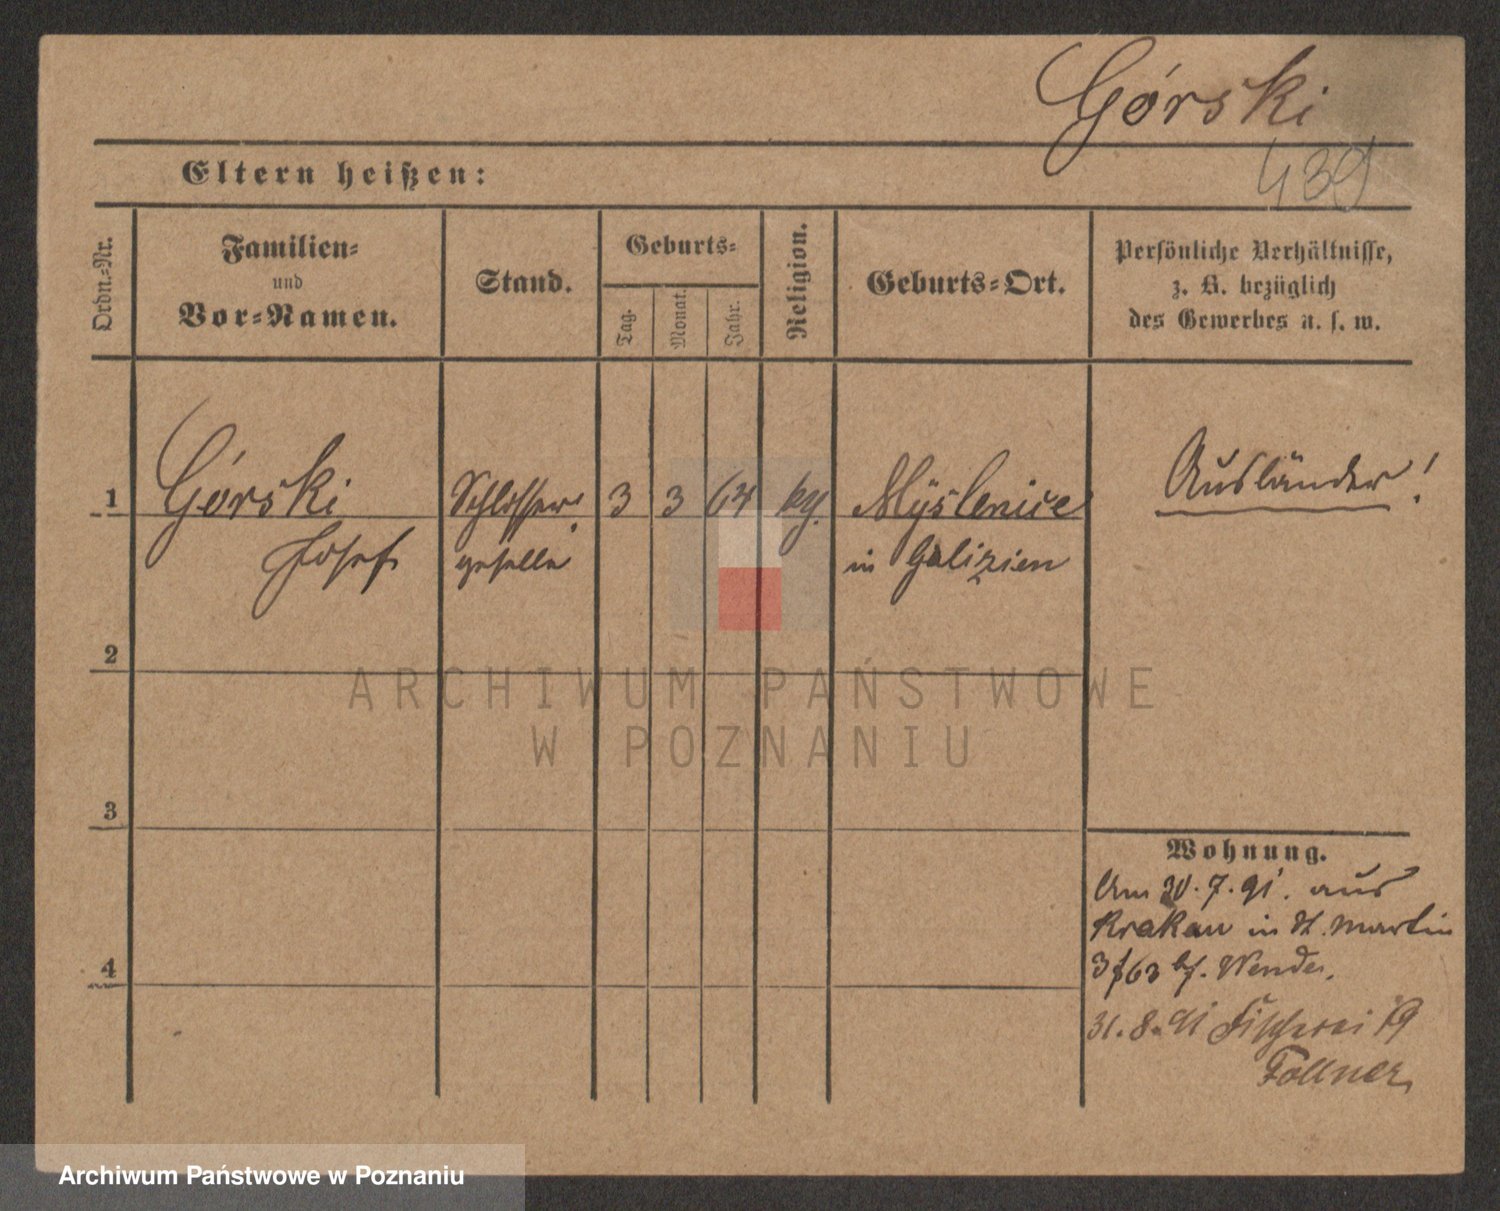 Górski
439
Eltern heißen:
Ordn.-Nr.
Familien-
und
Vor-Namen.
Stand.
Geburts-
Tag.
Monat.
Jahr.
Religion.
Geburts-Ort.
Persönliche Verhältnisse,
z. B. bezüglich
des Gewerbes u. s. w.
1
Górski
Josef
Schlosser
geselle
3
3
64
kg.
Myślenice
in Galizien
Ausländer!
2
3
4
ARCHIWUM PAŃSTWOWE
W POZNANIU
Wohnung.
Am 30.7.91. aus
Krakau in St. Martin
bf. Wende.
31.8.91 Fischerei 19
Follner
Archiwum Państwowe w Poznaniu